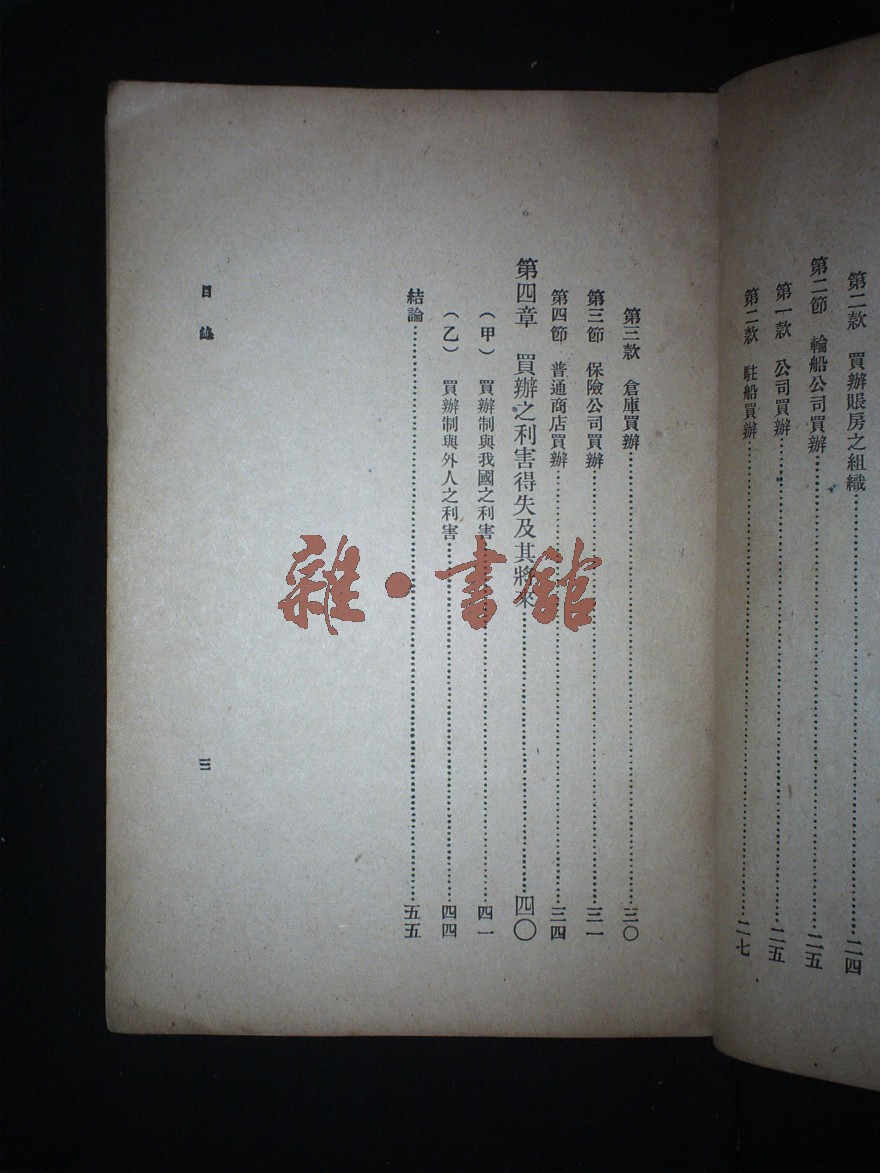 第二款 買辦賬房之組織……二四
第二節 輪船公司買辦……二五
第一款 公司買辦……二五
第二款 駐船買辦……二七
第三款 倉庫買辦……三〇
第三節 保險公司買辦……三一
第四節 普通商店買辦……三四
第四章 買辦之利害得失及其將來……四〇
(甲) 買辦制與我國之利害……四一
(乙) 買辦制與外人之利害……四四
結論……五五
目錄
三
雜·書館